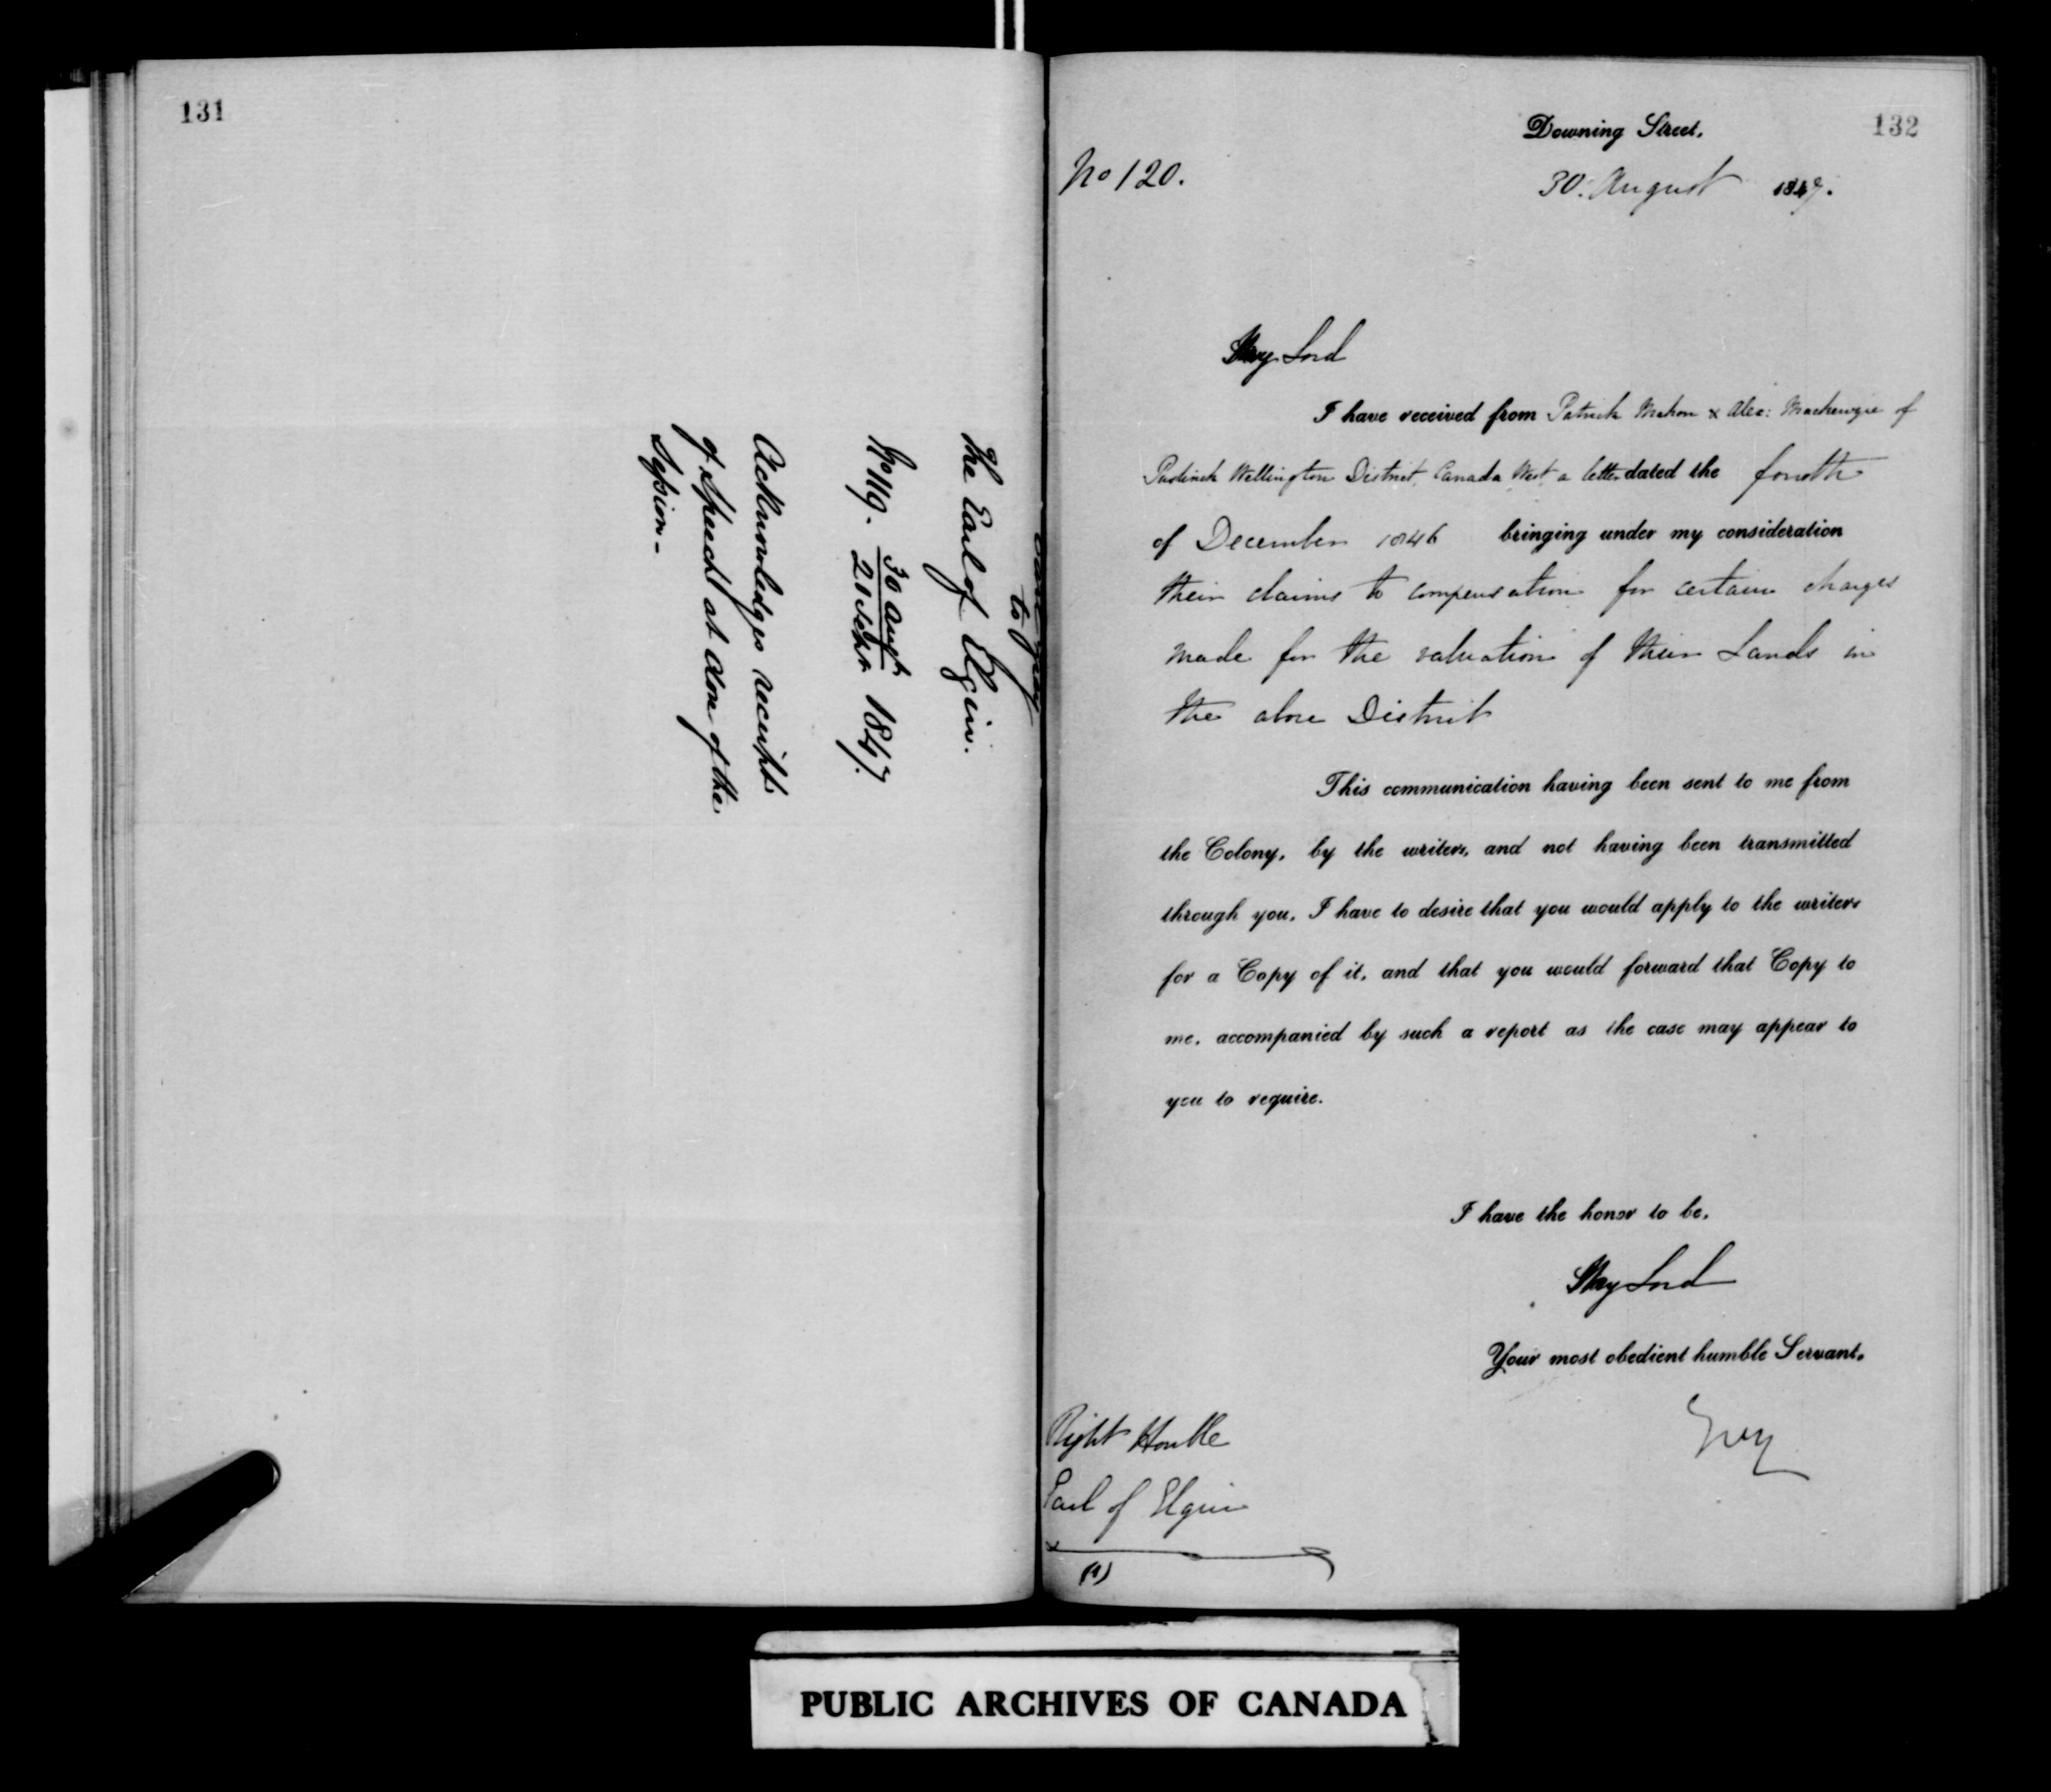 131
to Grey
The Earl of Elgin.
No 119. 30 Augt 1847.
21 Sepr
Acknowledges receipt
of Speech at close of the
Session -
132
Downing Street,
No 120.
30. August 1847.
My Lord
I have received from Patrick Mahon & Alex: Mackenzie of
Puslinch Wellington District, Canada West a letter dated the fourth
of December 1846 bringing under my consideration
their claims to compensation for certain charges
made for the valuation of their Lands in
the above District
This communication having been sent to me from
the Colony, by the writers, and not having been transmitted
through you, I have to desire that you would apply to the writers
for a Copy of it, and that you would forward that Copy to
me, accompanied by such a report as the case may appear to
you to require.
I have the honor to be,
My Lord
Your most obedient humble Servant,
Grey
Right Honble
Earl of Elgin
(1)
PUBLIC ARCHIVES OF CANADA